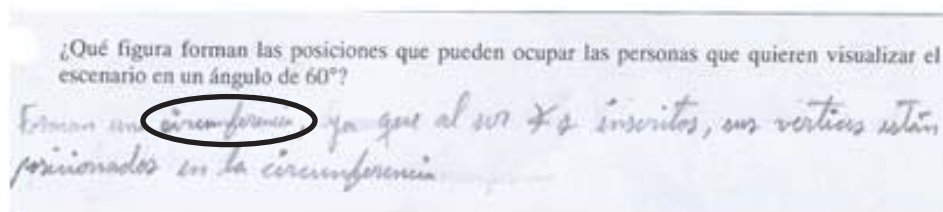 ¿Qué figura forman las posiciones que pueden ocupar las personas que quieren visualizar el
escenario en un ángulo de 60°?
Forman una circunferencia ya que al ser ∡s inscritos, sus vertices están
posicionados en la circunferencia